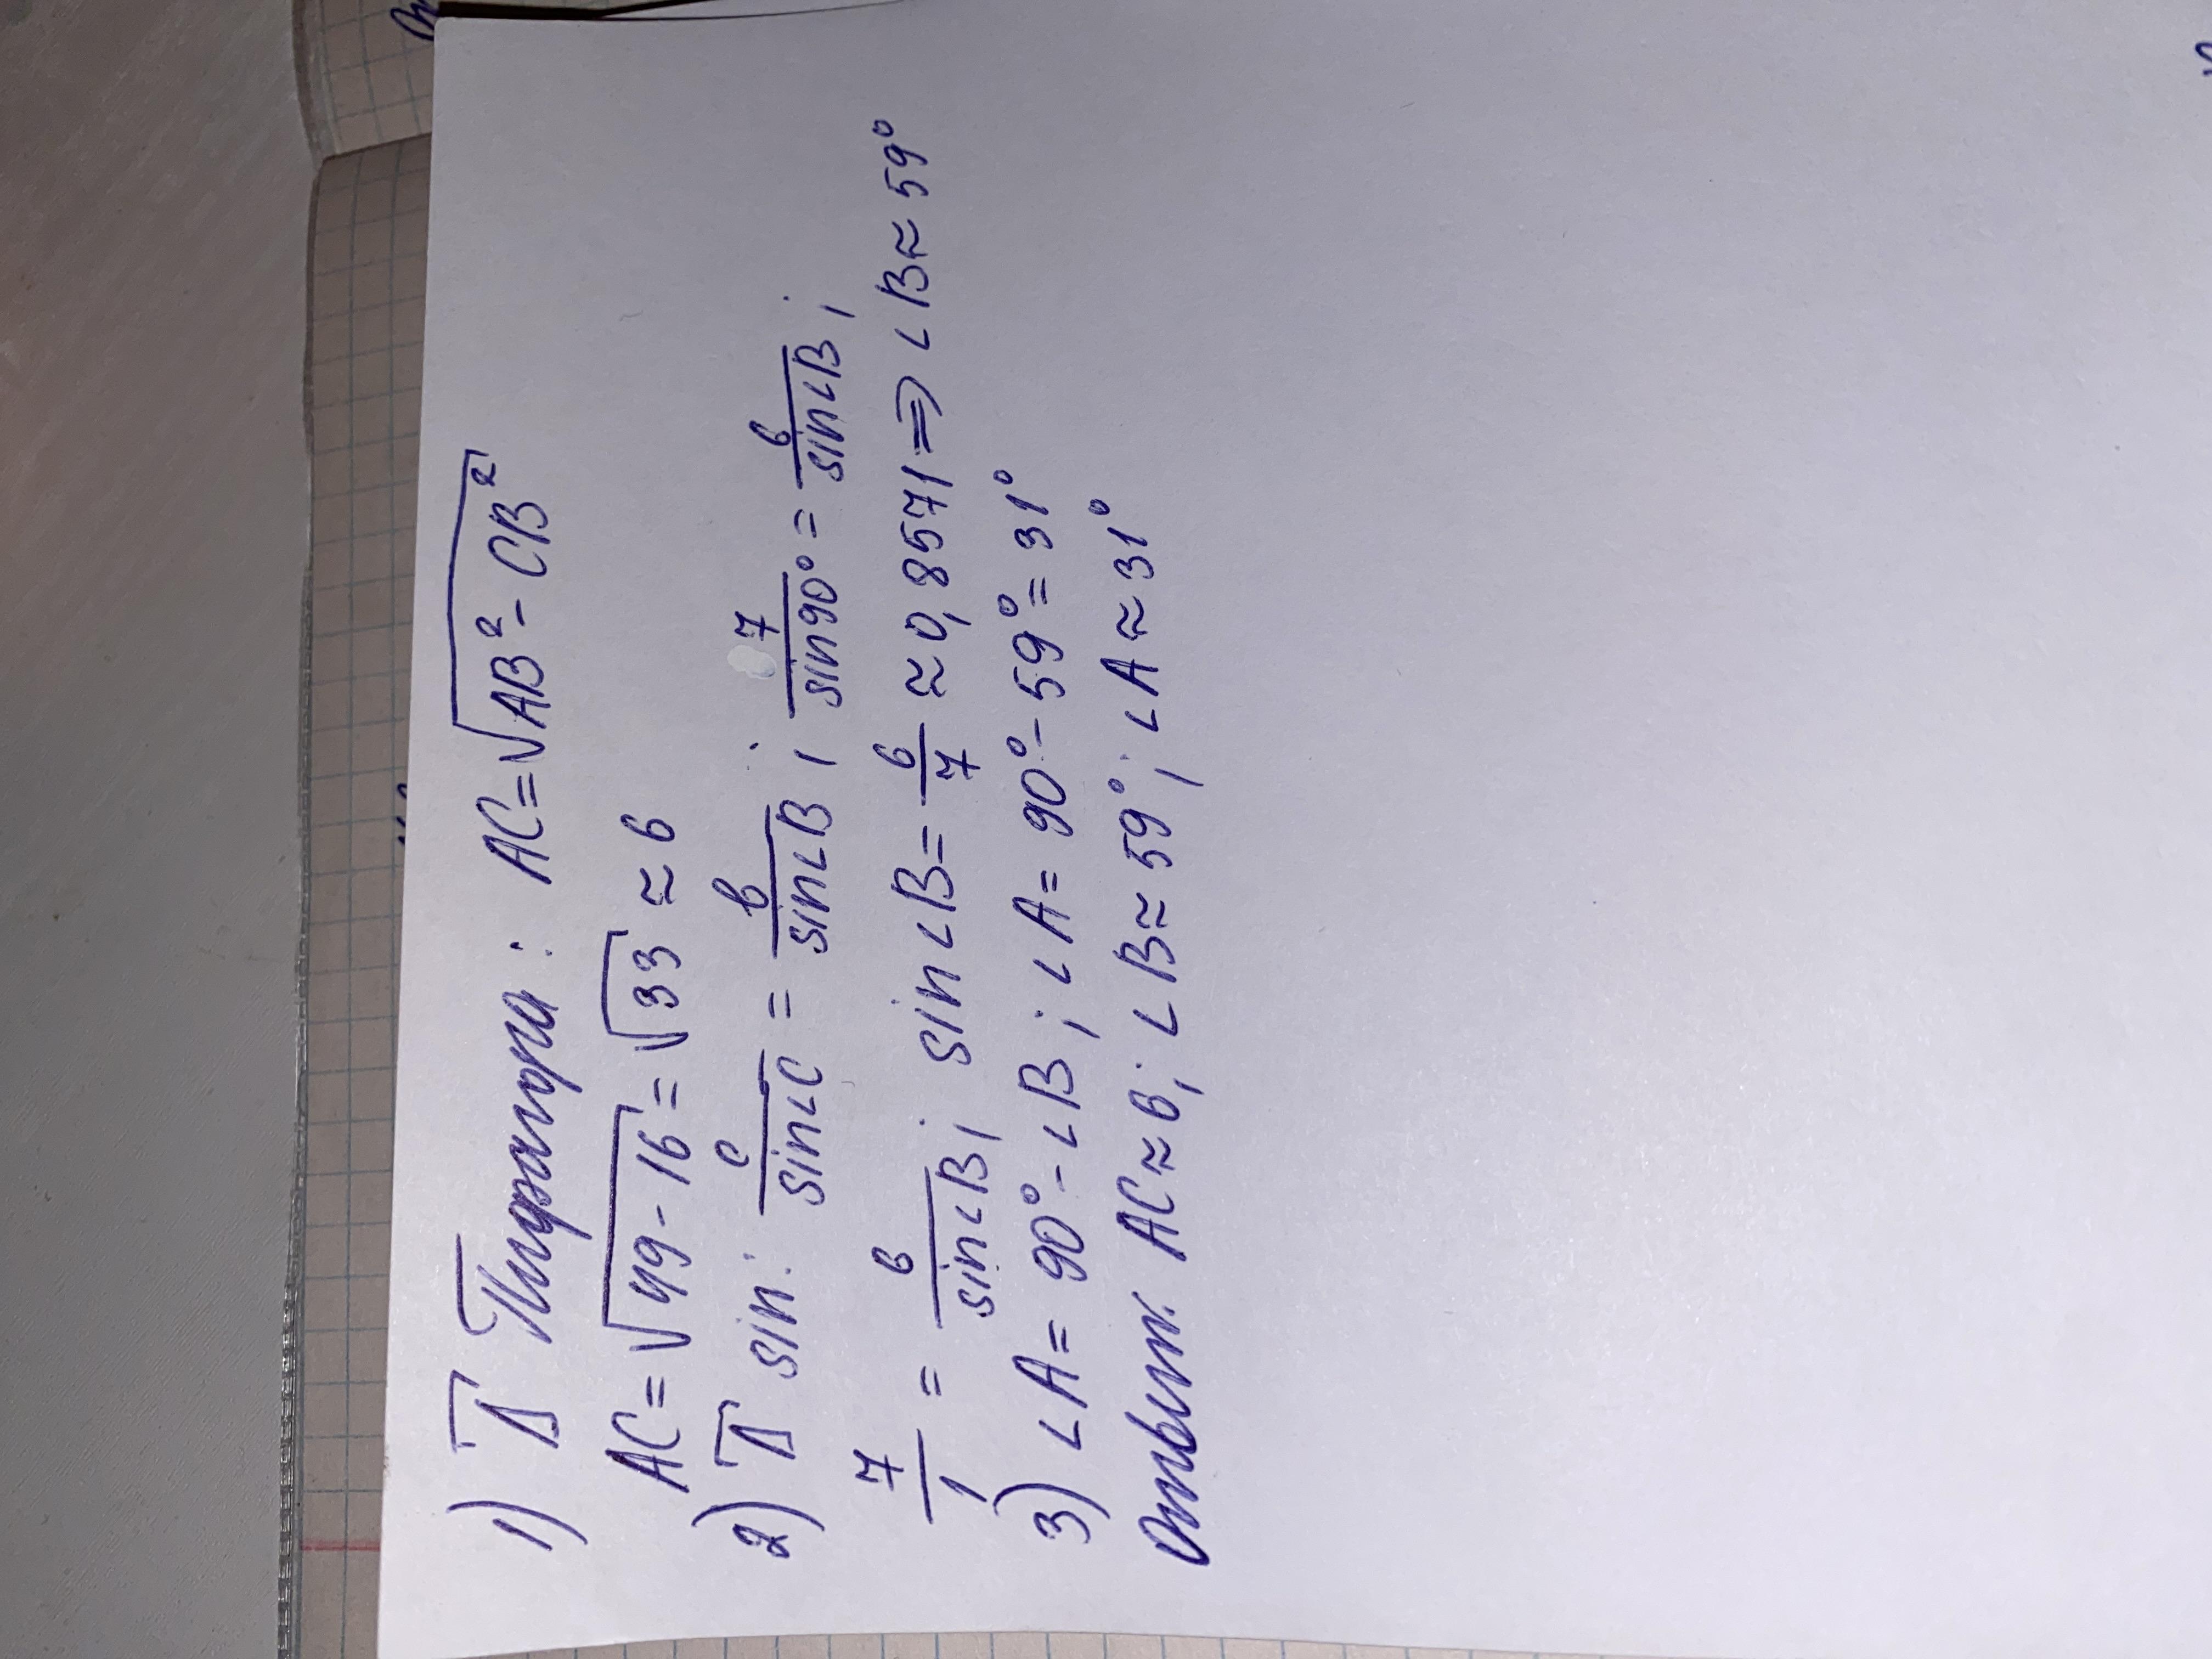 1) Т Пифагора: AC=√AB²-CB²
AC=√49-16=√33≈6
2) Т sin: c/sin∠C = b/sin∠B; 7/sin90°=6/sin∠B;
7/1=6/sin∠B; sin∠B=6/7≈0,8571⇒∠B≈59°
3) ∠A=90°-∠B; ∠A=90°-59°=31°
Ответ: AC≈6; ∠B≈59°; ∠A≈31°